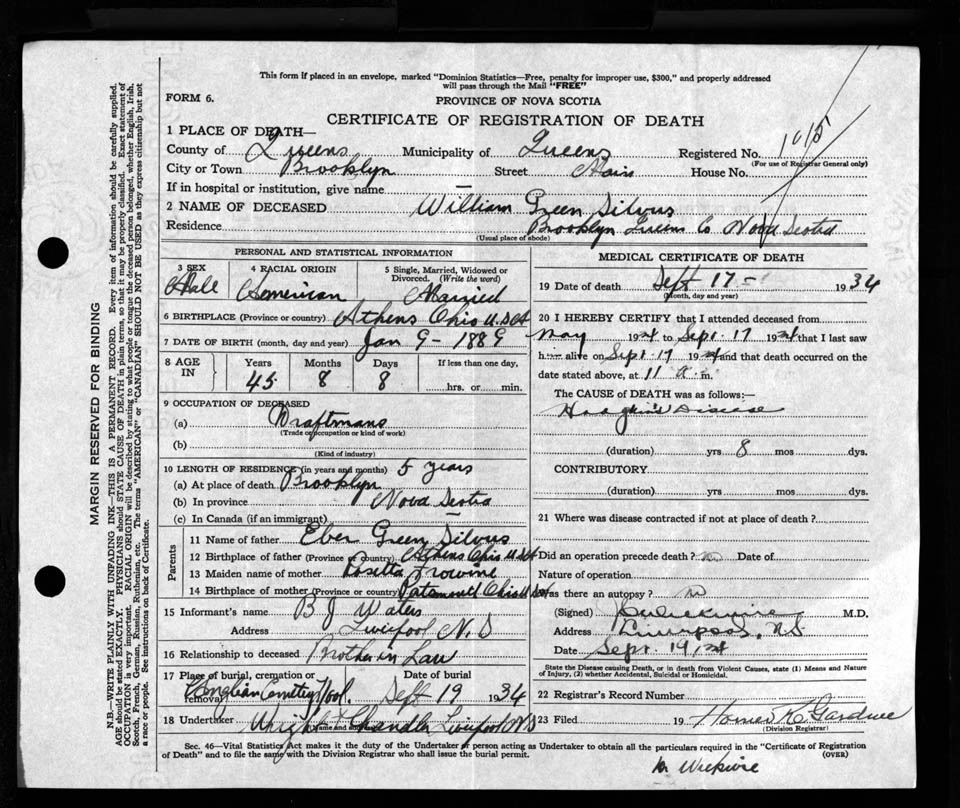 This form if placed in an envelope, marked "Dominion Statistics—Free, penalty for improper use, $300," and properly addressed
will pass through the Mail "FREE"
FORM 6.
PROVINCE OF NOVA SCOTIA
CERTIFICATE OF REGISTRATION OF DEATH
1 PLACE OF DEATH—
County of Queens Municipality of Queens Registered No. 1015
(For use of Registrar General only)
City or Town Brooklyn Street Main House No.
If in hospital or institution, give name —
2 NAME OF DECEASED William Green Silvus
Residence Brooklyn Queens Co Nova Scotia
(Usual place of abode)
PERSONAL AND STATISTICAL INFORMATION
3 SEX Male
4 RACIAL ORIGIN American
5 Single, Married, Widowed or Divorced. (Write the word) Married
6 BIRTHPLACE (Province or country) Athens Ohio U.S.A
7 DATE OF BIRTH (month, day and year) Jan 9 - 1889
8 AGE IN
Years Months Days If less than one day,
45 8 8 hrs. or min.
9 OCCUPATION OF DECEASED
(a) Draftmans
(Trade or occupation or kind of work)
(b)
(Kind of industry)
10 LENGTH OF RESIDENCE (in years and months) 5 years
(a) At place of death Brooklyn
(b) In province Nova Scotia
(c) In Canada (if an immigrant) —
Parents
11 Name of father Eber Green Silvus
12 Birthplace of father (Province or country) Athens Ohio U.S.A
13 Maiden name of mother Rosetta Frowine
14 Birthplace of mother (Province or country) Patsmouth Ohio U.S.A
15 Informant's name B J Waters
Address Liverpool N.S
16 Relationship to deceased Brother in Law
17 Place of burial, cremation or removal Date of burial
Anglian Cemetery Pool. Sept 19 1934
18 Undertaker Wright & Chandler Liverpool N.S
(Name and address)
MEDICAL CERTIFICATE OF DEATH
19 Date of death Sept 17 - 1934
(Month, day and year)
20 I HEREBY CERTIFY that I attended deceased from
May 1934 to Sept 17 1934 that I last saw
h alive on Sept 17 1934 and that death occurred on
date stated above, at 11 a. m.
The CAUSE OF DEATH was as follows:—
Hodgkin's Disease
(duration) yrs 8 mos dys.
CONTRIBUTORY.
(duration) yrs. mos. dys.
21 Where was disease contracted if not at place of death?
Did an operation precede death? no Date of
Nature of operation
Was there an autopsy? no
(Signed) Wickwire M.D.
Address Liverpool, N.S
Date Sept. 19, 34
State the Disease causing Death, or in death from Violent Causes, state (1) Means and Nature
of Injury, (2) whether Accidental, Suicidal or Homicidal.
22 Registrar's Record Number
23 Filed 19 Homer K Gardner
(Division Registrar)
Sec. 46—Vital Statistics Act makes it the duty of the Undertaker or person acting as Undertaker to obtain all the particulars required in the "Certificate of Registration
of Death" and to file the same with the Division Registrar who shall issue the burial permit.
(OVER)
Dr Wickwire
MARGIN RESERVED FOR BINDING
N.B.—WRITE PLAINLY WITH UNFADING INK—THIS IS A PERMANENT RECORD. Every item of information should be carefully supplied.
AGE should be stated EXACTLY. PHYSICIANS should STATE CAUSE OF DEATH in plain terms, so that it may be properly classified. Exact statement of
OCCUPATION is very important. RACIAL ORIGIN will be described by stating to what people or tongue the deceased person belonged, whether English, Irish,
Scotch, French, German, Russian, Ruthenian, etc. The terms "AMERICAN" or "CANADIAN" SHOULD NOT BE USED as they express citizenship but not
a race or people. See instructions on back of Certificate.